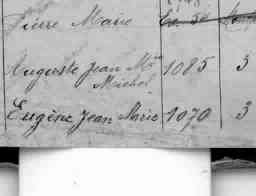 Pierre Marie
Auguste Jean Mie 1085 3
Michel
Eugène Jean Marie 1070 3